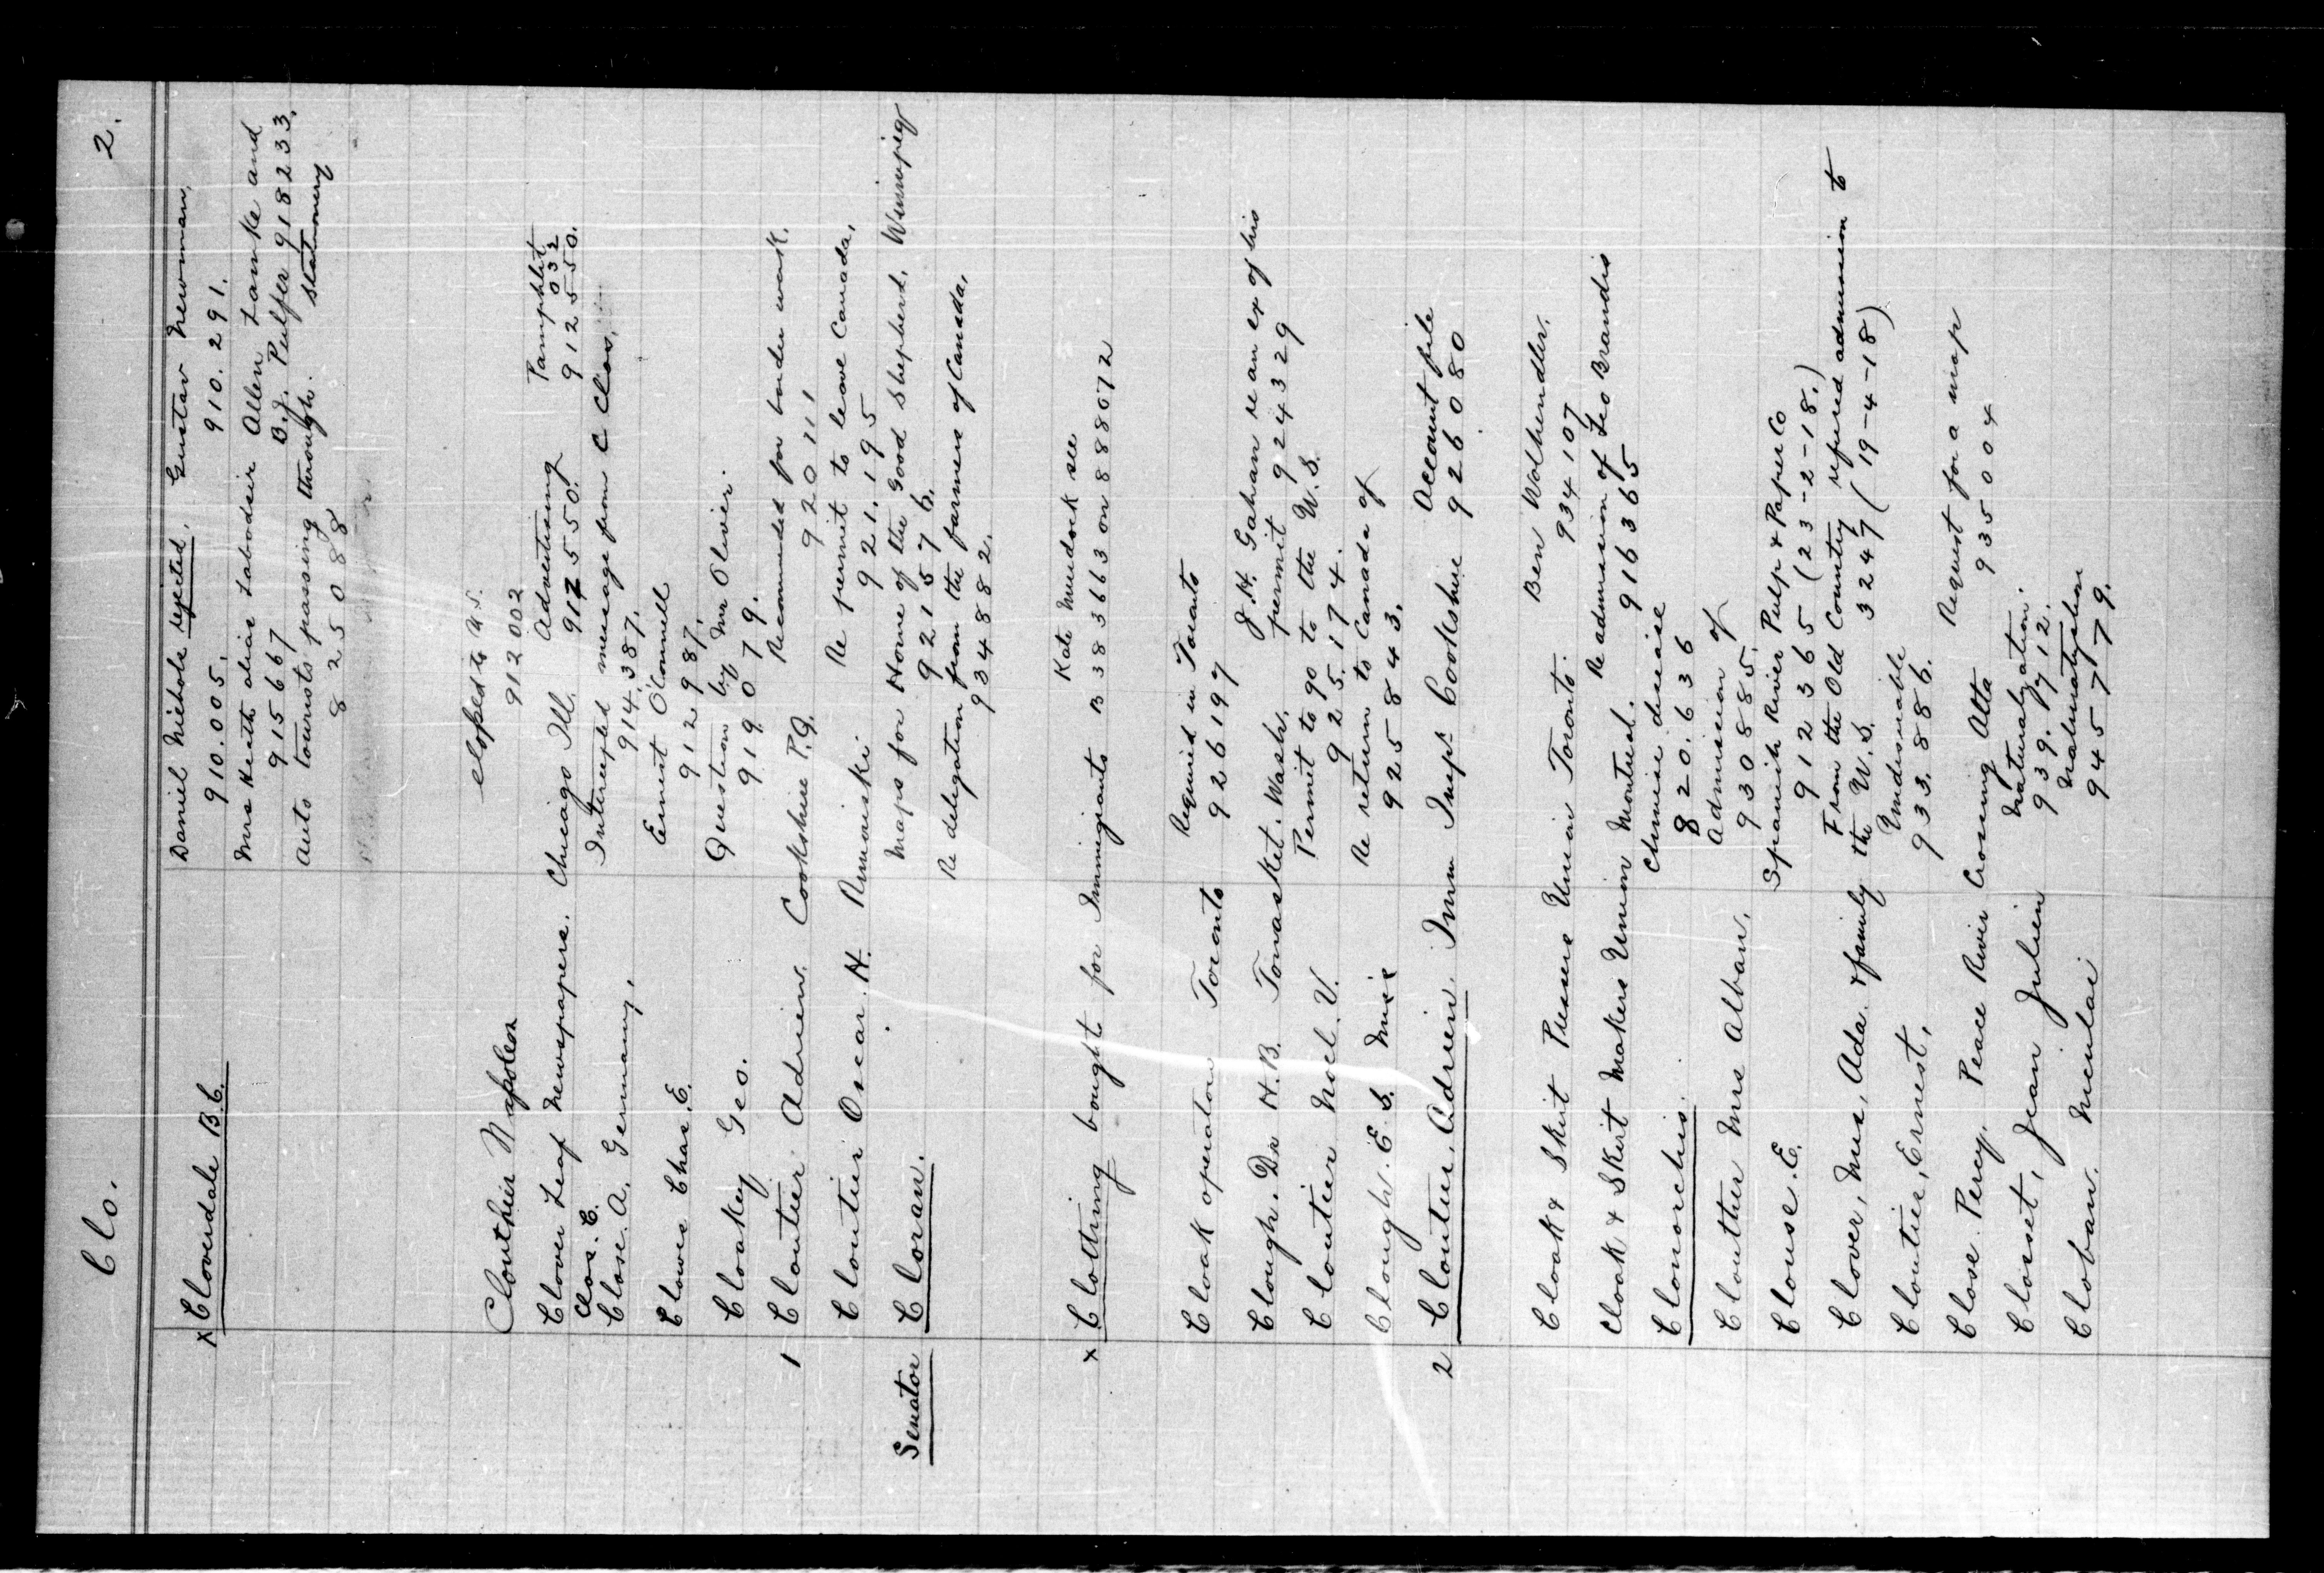 Clo. 2.
Daniel Nichols rejected. Gustav Newman.
x Cloverdale B.C. 910.005. 910.291.
Mrs Keith alias Labodsir Allen Lamke and
915667 B.J. Pulfer 918233.
Auto tourists passing through. Stationery
825088
eloped to U.S.
Clouthier Napoleon 912002
Clover Leaf Newspapers. Chicago Ill. Advertising Pamphlet 032
912550. 912550.
Clos. E. Intercepted message from C Clos.
Close. A. Germany. 914.387.
Ernest O'Connell
Clowes Chas. E. 912987.
Question by Mr Olivier.
Cloakey Geo. 919079.
Recommended for border work.
1 Cloutier Adrien. Cookshire P.Q. 920111
Re permit to leave Canada.
Cloutier Oscar. H. Rimouski 921.195
Maps for Home of the Good Shepherd, Winnipeg
Senator Cloran. 921576.
Re delegation from the farmers of Canada.
934882.
Kate Murdock see
x Clothing bought for Immigrants B 383663 on 888072
Required in Toronto
Cloak operators Toronto 926197
J.H. Gahan re an ex of his
Clough. Dr H.B. Tonasket. Wash. permit 924329
Permit to go to the U.S.
Cloutier Noel. V. 925.174.
Re return to Canada of
Clough. E. S. Miss 925843.
Account file
2 Cloutier, Adrien. Imm Insp. Cookshire 926080
Ben Wolhendler.
Cloak & Skirt Pressers Union Toronto. 934107
Re admission of Leo Brandis
Cloak & Skirt Makers Union Montreal. 916365
Chinese disease
Clonorchis. 820.636
Admission of
Clouther Mrs Alban. 930885.
Spanish River Pulp & Paper Co
Clouse. E. 912365 (23-2-18.)
From the Old Country refused admission to
Clover, Mrs, Ada. & family the U.S. 3247 (19-4-18)
Undesirable
Cloutier, Ernest, 933.886.
Request for a map
Close Percy. Peace River Crossing Alta 935004
Naturalization.
Closset, Jean Julien 939.712.
Naturalization
Cloban. 945779.